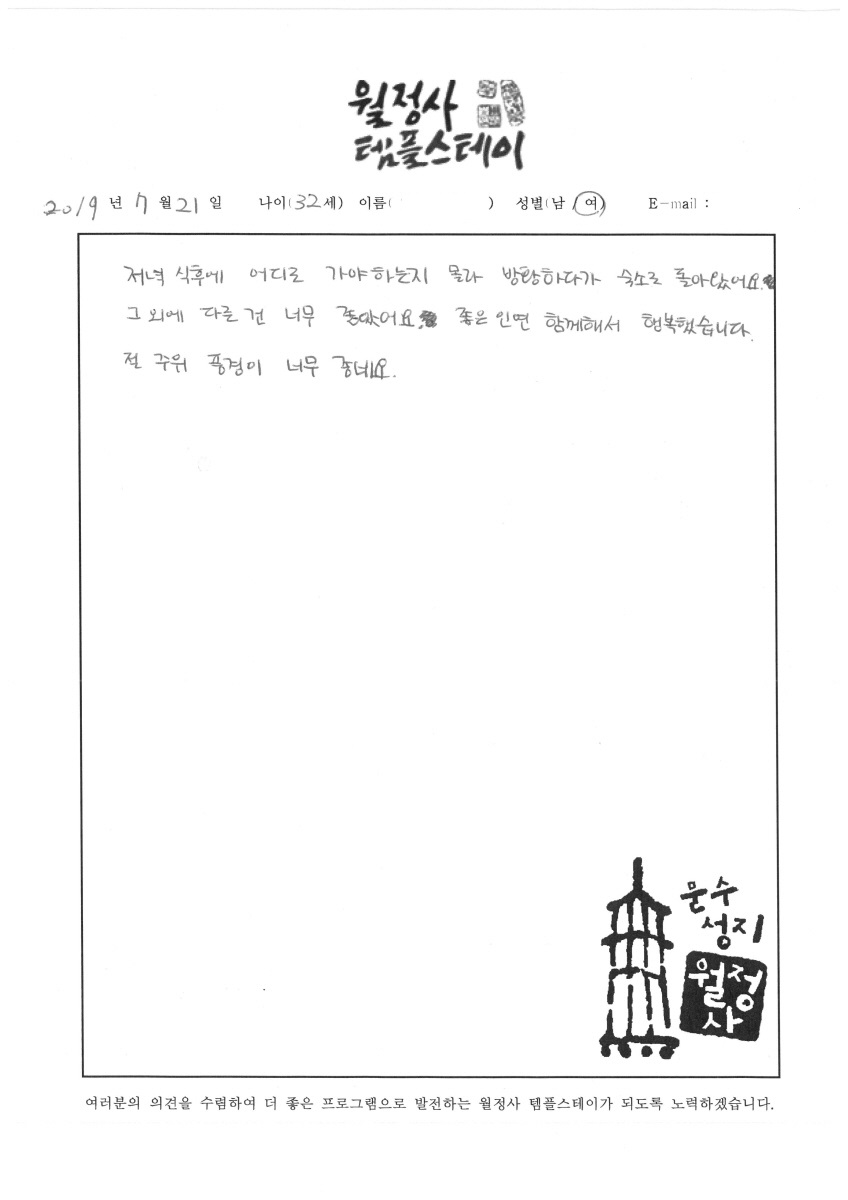 월정사
템플스테이
2019 년 7 월 21 일 나이(32세) 이름( ) 성별(남 / 여) E-mail :
저녁 식후에 어디로 가야하는지 몰라 방랑하다가 숙소로 돌아왔어요.
그 외에 다른 건 너무 좋았어요. 좋은 인연 함께해서 행복했습니다.
절 주위 풍경이 너무 좋네요.
문수
성지
월정
사
여러분의 의견을 수렴하여 더 좋은 프로그램으로 발전하는 월정사 템플스테이가 되도록 노력하겠습니다.